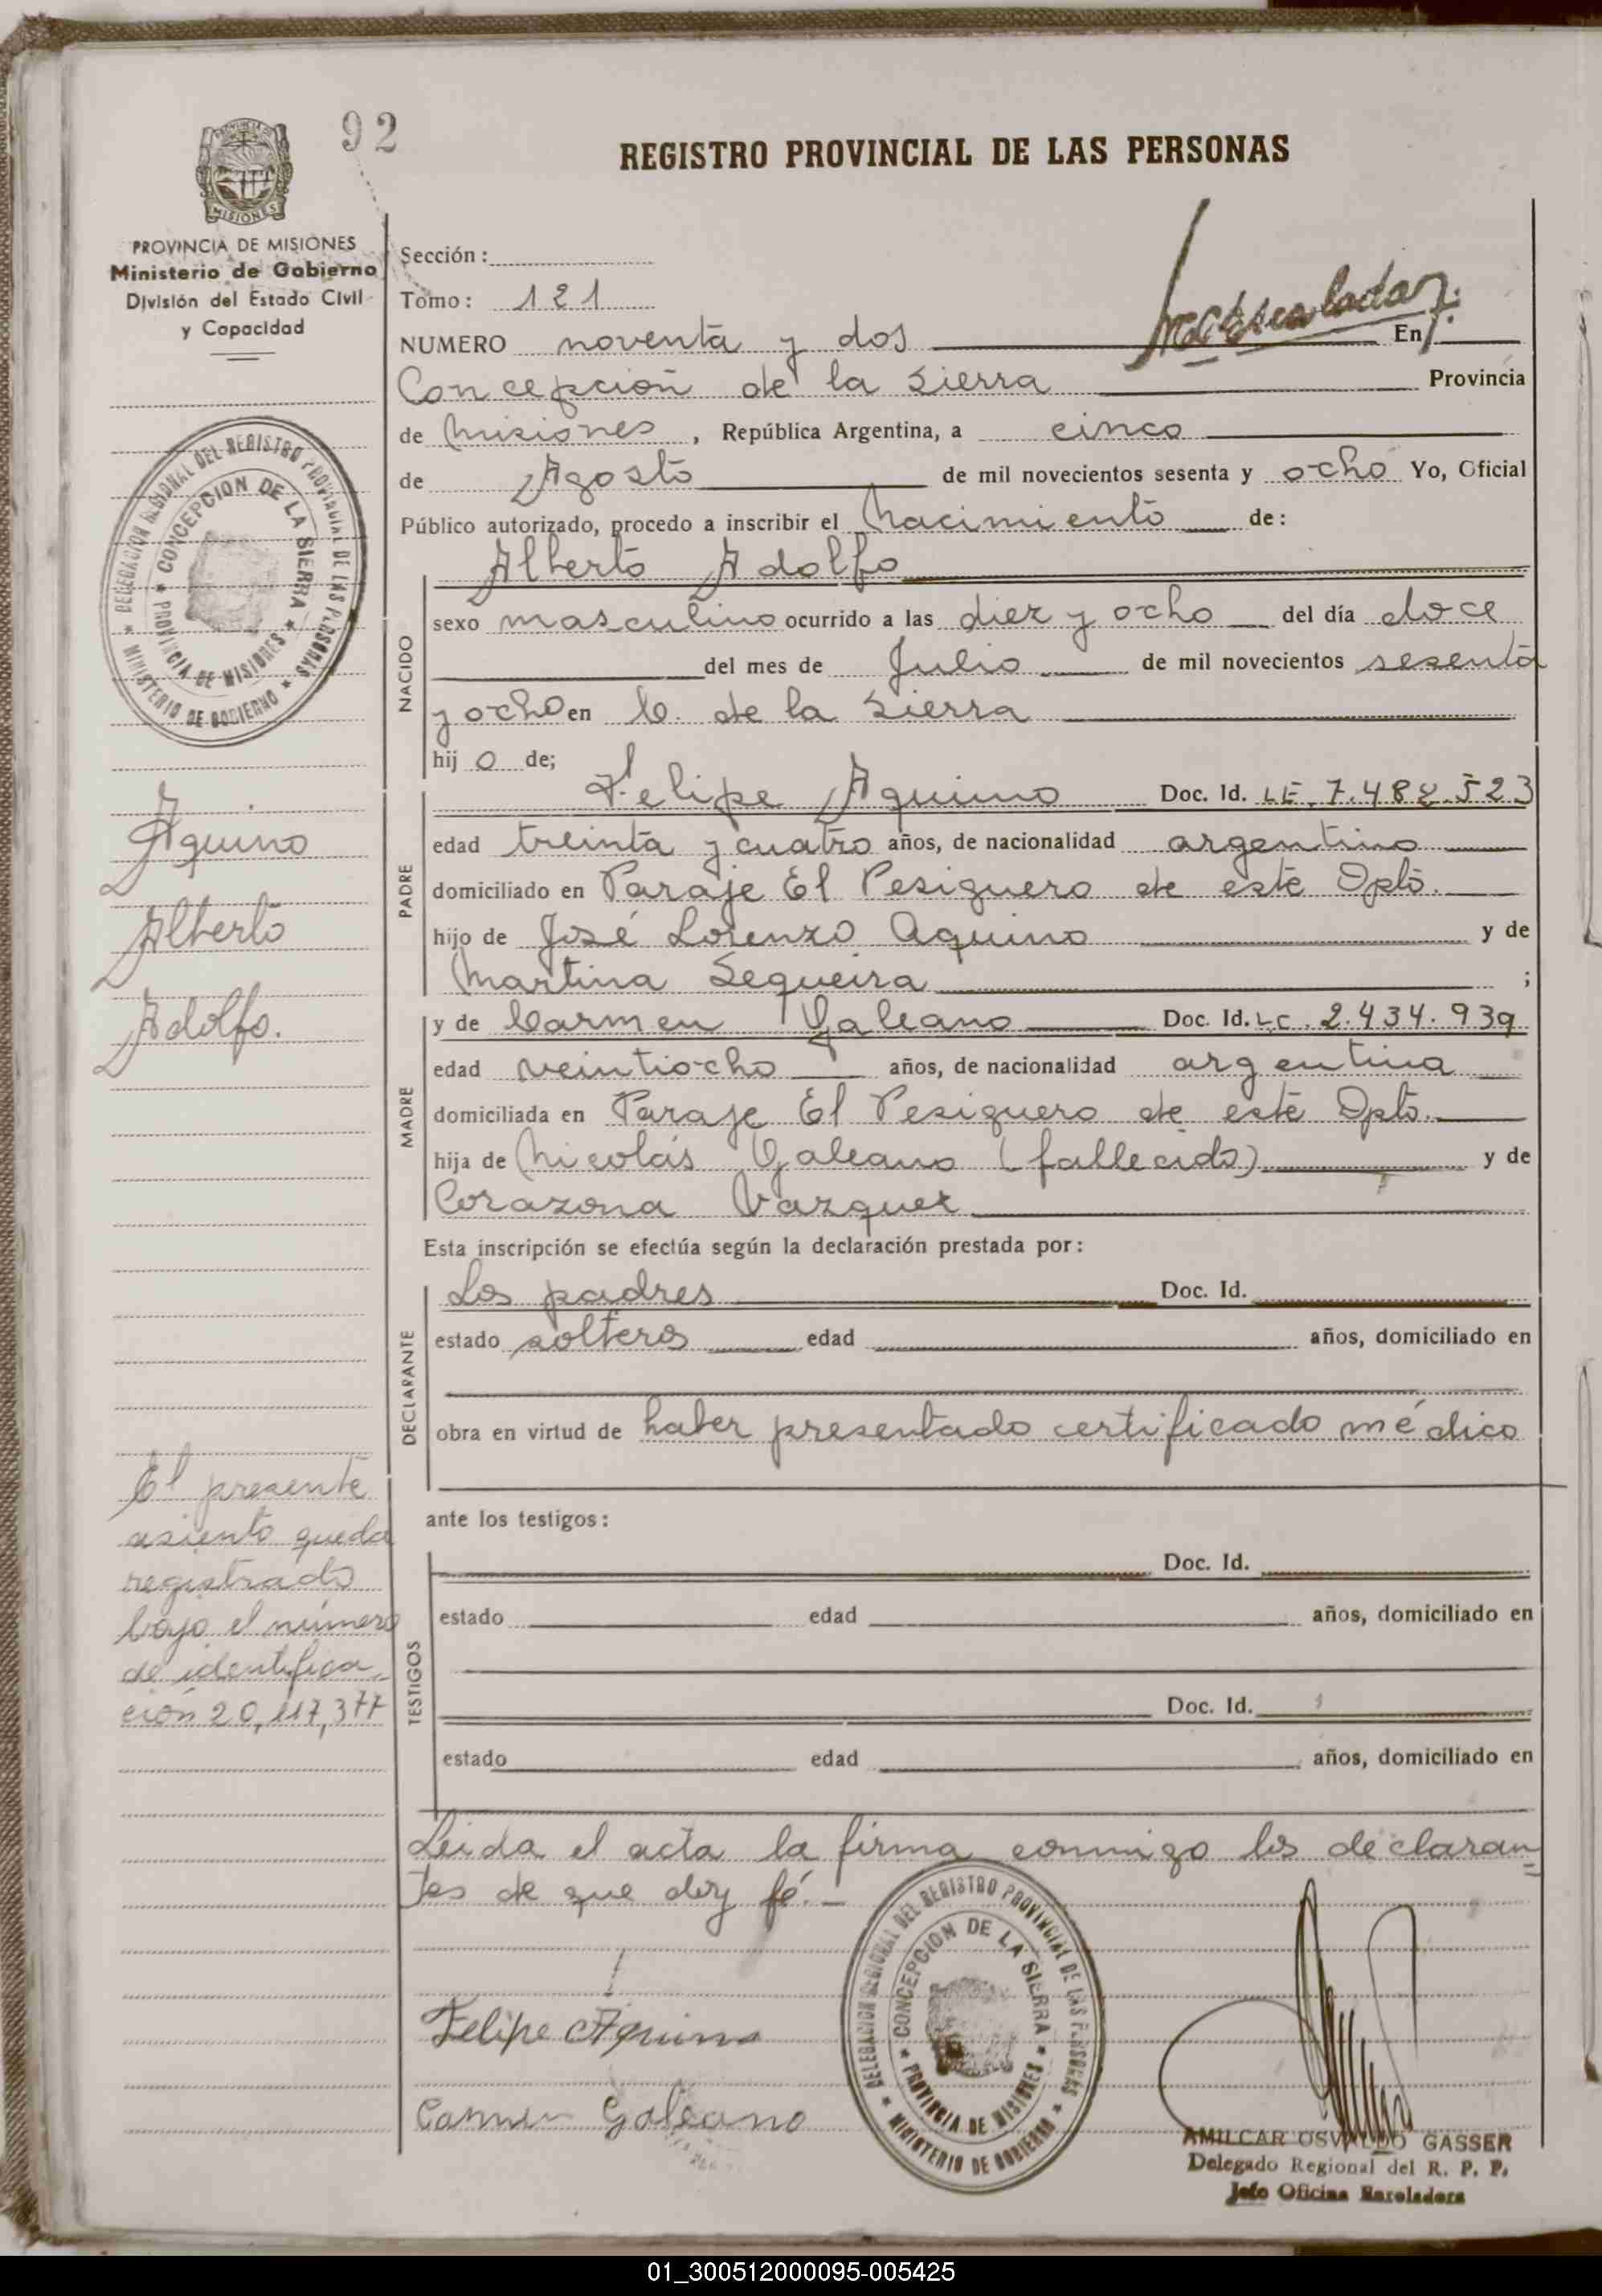 92
REGISTRO PROVINCIAL DE LAS PERSONAS
MISIONES
PROVINCIA DE MISIONES
Ministerio de Gobierno
División del Estado Civil
y Capacidad
Sección:
Tomo: 121
NUMERO noventa y dos En
Concepción de la Sierra Provincia
de Misiones, República Argentina, a cinco
de Agosto de mil novecientos sesenta y ocho Yo, Oficial
Público autorizado, procedo a inscribir el Nacimiento de:
Alberto Adolfo
DELEGACION REGIONAL DEL REGISTRO PROVINCIAL DE LAS PERSONAS
CONCEPCION DE LA SIERRA
PROVINCIA DE MISIONES
MINISTERIO DE GOBIERNO
NACIDO
sexo masculino ocurrido a las diez y ocho del día doce
del mes de Julio de mil novecientos sesenta
y ocho en C. de la Sierra
hij o de;
Aquino
Alberto
Adolfo.
PADRE
Felipe Aquino Doc. Id. LE. 7.482.523
edad treinta y cuatro años, de nacionalidad argentino
domiciliado en Paraje El Pesiguero de este Dpto.
hijo de José Lorenzo Aquino y de
Martina Sequeira ;
MADRE
y de Carmen Galeano Doc. Id. LC. 2.434.939
edad veintiocho años, de nacionalidad argentina
domiciliada en Paraje El Pesiguero de este Dpto.
hija de Nicolás Galeano (fallecido) y de
Corazona Vazquez
Esta inscripción se efectúa según la declaración prestada por:
DECLARANTE
Los padres Doc. Id.
estado solteros edad años, domiciliado en
obra en virtud de haber presentado certificado médico
El presente
asiento queda
registrado
bajo el número
de identifica
ción 20,117,377
ante los testigos:
TESTIGOS
Doc. Id.
estado edad años, domiciliado en
Doc. Id.
estado edad años, domiciliado en
Leida el acta la firma conmigo los declaran
tes de que doy fé.-
Felipe Aquino
Carmen Galeano
DELEGACION REGIONAL DEL REGISTRO PROVINCIAL DE LAS PERSONAS
CONCEPCION DE LA SIERRA
PROVINCIA DE MISIONES
MINISTERIO DE GOBIERNO
AMILCAR OSVALDO GASSER
Delegado Regional del R. P. P.
Jefe Oficina Enroladora
01_300512000095-005425